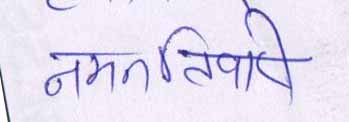 नमन तिवारी